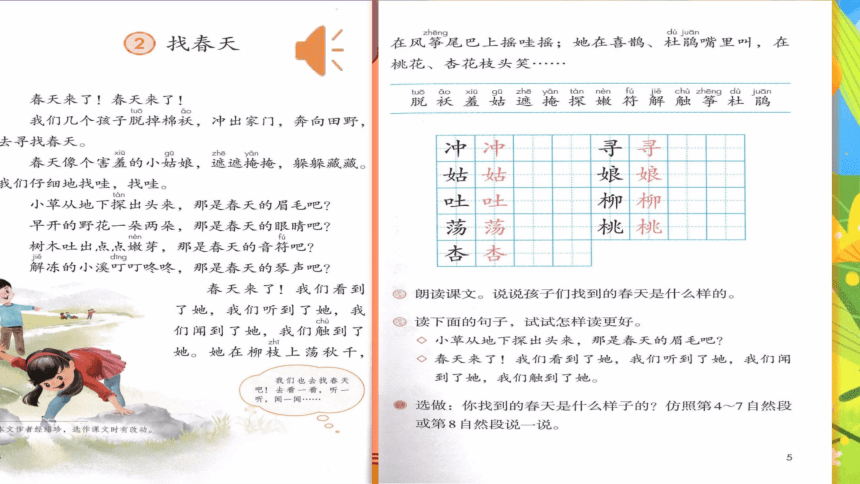 2 找春天
春天来了！春天来了！
tuō ǎo
我们几个孩子脱掉棉袄，冲出家门，奔向田野，
去寻找春天。
xiū gū zhē yǎn
春天像个害羞的小姑娘，遮遮掩掩，躲躲藏藏。
我们仔细地找哇，找哇。
tàn
小草从地下探出头来，那是春天的眉毛吧？
早开的野花一朵两朵，那是春天的眼睛吧？
nèn fú
树木吐出点点嫩芽，那是春天的音符吧？
jiě dīng
解冻的小溪叮叮咚咚，那是春天的琴声吧？
春天来了！我们看到
了她，我们听到了她，我
chù
们闻到了她，我们触到了
zhī
她。她在柳枝上荡秋千，
我们也去找春天
吧！去看一看，听一
听，闻一闻……
本文作者经绪珍，选作课文时有改动。
zhēng dù juān
在风筝尾巴上摇哇摇；她在喜鹊、杜鹃嘴里叫，在
桃花、杏花枝头笑……
tuō ǎo xiū gū zhē yǎn tàn nèn fú jiě chù zhēng dù juān
脱 袄 羞 姑 遮 掩 探 嫩 符 解 触 筝 杜 鹃
冲 冲 寻 寻
姑 姑 娘 娘
吐 吐 柳 柳
荡 荡 桃 桃
杏 杏
朗读课文。说说孩子们找到的春天是什么样的。
读下面的句子，试试怎样读更好。
◇ 小草从地下探出头来，那是春天的眉毛吧？
◇ 春天来了！我们看到了她，我们听到了她，我们闻
到了她，我们触到了她。
选做：你找到的春天是什么样子的？仿照第4～7自然段
或第8自然段说一说。
5